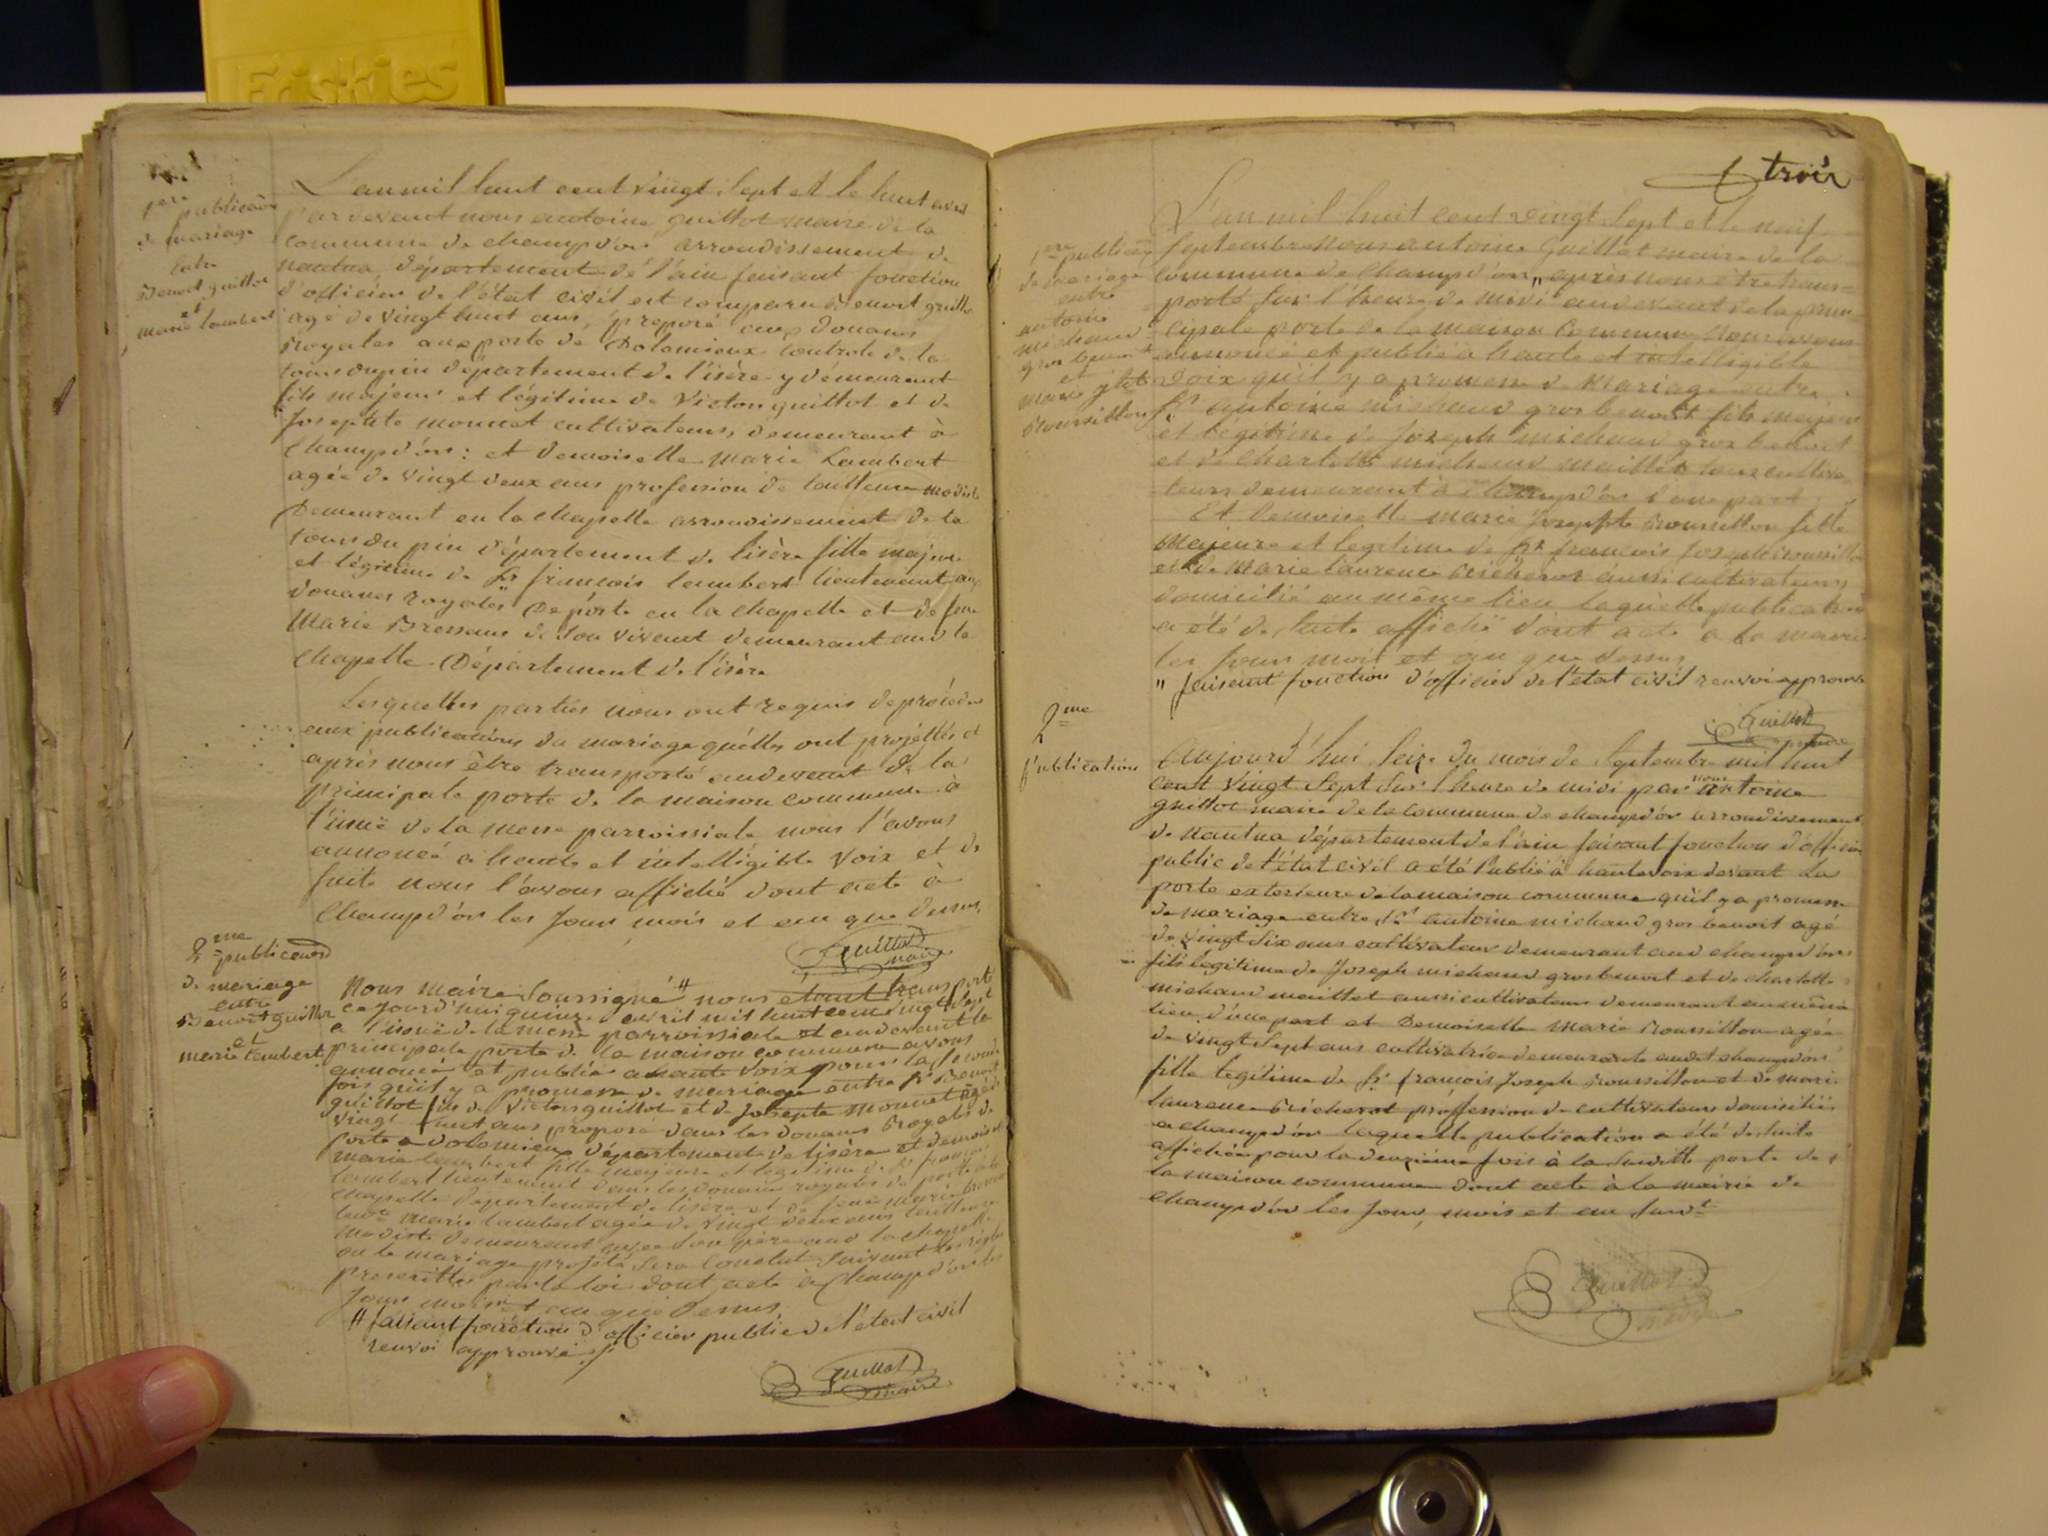 Friskies
1ere publication
de mariage
entre
Benoit guillot
et
marie lambert
L'an mil huit cent vingt sept et le huit avril
Pardevant nous antoine guillot maire de la
commune de champdor arrondissement de
nantua, département de l'ain faisant fonction
d'officier de l'état civil est comparu Benoit guillot
agé de vingt huit ans, préposé aux Douanes
Royales au poste de Dolomieux controle de la
tour dupin département de l'isère y démeurant
fils majeur et légitime de Victor guillot et de
Josephte monnet cultivateurs demeurant à
Champdor: et demoiselle marie Lambert
agée de vingt deux ans profession de tailleuse modiste
Demeurant en la chapelle arrondissement de la
tour du pin département de lisère fille majeure
et légitime de Sr françois lambert lieutenant aux
douanes royales De poste en la chapelle et de feue
Marie Bressans de son vivant demeurant aud la
chapelle Département de l'isère
Lesquelles parties nous ont requis de procéder
aux publications du mariage qu'elles ont projettés et
après nous être transporté audevant de la
principale porte de la maison commune à
l'issuë de la messe parroissiale nous l'avons
annoncé à haute et intelligible voix et de
suite nous l'avons affiché dont acte à
Champdor les Jour mois et an que dessus
Guillot
maire
2me
publication
de mariage
entre
Benoit guillot
et
marie Lambert
Nous maire Soussigné " nous étant transporté
ce jourd'hui quinze avril mil huit cent vingt sept
a l'issuë de la messe parroissiale et audevant la
principale porte de la maison commune avons
annoncé et publié a haute voix pour la seconde
fois qu'il y a promesse de mariage entre Sr Benoit
guillot fils de Victor guillot et de Josephte monnet agé de
vingt huit ans préposé dans les douanes Royales de
poste a dolomieux département de lisère et demoiselle
marie lambert fille majeure et legitime de Sr françois
lambert lieutenant dans les douanes royales de poste a la
chapelle Département de lisère et de feue marie bressans
marie lambert agée de vingt deux ans tailleuse
modiste demeurant avec son père aud la chapelle
ou le mariage projeté sera conclut suivant les règles
prescrittes par la loi dont acte à Champdor les
Jour mois et an que Dessus
" faisant fonction d'officier public de l'état civil
renvoi approuvé
Guillot
maire
trois
1ere publication
de mariage
entre
antoine
michaud
gros benoit
et
marie jhte
Roussillon
L'an mil huit cent vingt Sept et le neuf
Septembre Nous antoine Guillot maire de la
commune de Champdor " après nous être trans=
porté sur l'heure de midi audevant de la prin=
cipale porte de la maison commune Nous avons
annoncé et publié à haute et intelligible
voix qu'il y a promesse de Mariage entre
Sr antoine michaud gros benoit fils majeur
et légitime de Joseph michaud gros benoit
et de charlotte michaud maillet tous cultiva
teurs demeurant à champdor d'une part
Et Demoiselle marie Josephte Roussillon fille
Majeure et legitime de Sr françois Joseph roussillon
et de Marie laurence Bicherot aussi cultivateurs
domicilié au même lieu laquelle publication
a été de suite affiché dont acte a la mairie
les Jour mois et an que dessus
" faisant fonction d'officier de l'état civil renvoi approuvé
Guillot
maire
2me
Publication
Aujourd'hui Seize du mois de Septembre mil huit
cent vingt Sept sur l'heure de midi par nous antoine
guillot maire de la commune de champdor arrondissement
de Nantua département de l'ain faisant fonction d'officier
public de l'état civil a été Publié à haute voix devant la
porte exterieure de la maison commune qu'il y a promesse
de mariage entre Sr antoine michaud gros benoit agé
de vingt six ans cultivateur demeurant aud champdor
fils legitime de Joseph michaud grosbenoit et de charlotte
michaud maillet aussi cultivateurs demeurant au même
lieu d'une part et Demoiselle marie Roussillon agée
de vingt Sept ans cultivatrice demeurante audit champdor
fille legitime de Sr françois Joseph roussillon et de marie
laurence Bicherot proffession de cultivateurs domiciliés
a champdor laquelle publication a été de suite
affichée pour la deuxième fois à la susditte porte de
la maison commune dont acte à la mairie de
champdor les Jour, mois et an susdt
Guillot
maire